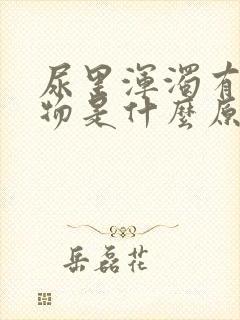 尿里渾濁有
物是什麼原
岳磊花